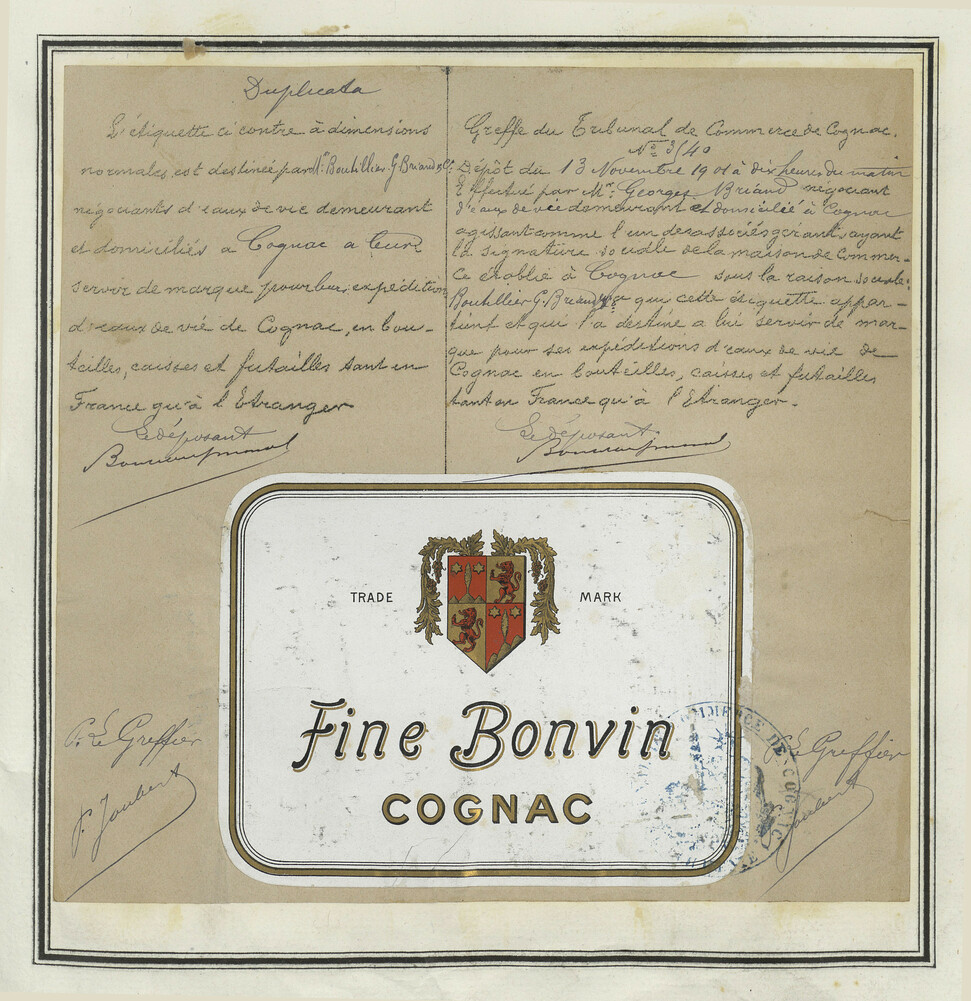 Duplicata
L'étiquette ci contre à dimensions
normales est destinée par Mrs Boutillier G. Briand & Cie
négociants d'eaux de vie demeurant
et domiciliés a Cognac a leur
servir de marque pour leur expédition
d'eaux de vie de Cognac, en bou-
teilles, caisses et futailles tant en
France qu'à l'Etranger
Le déposant
Greffe du Tribunal de Commerce de Cognac.
Dépôt du 13 Novembre 1901 à dix heures du matin
Effectué par Mr. Georges Briand négociant
d'eaux de vie demeurant et domicilié à Cognac
agissant comme l'un des associés gérant ayant
la signature sociale de la maison de Commer-
ce établie à Cognac sous la raison sociale
Boutillier G. Briand & Cie que cette étiquette appar-
tient et qu'il l'a destine a lui servir de mar-
que pour ses expéditions d'eaux de vie de
Cognac en bouteilles, caisses et futailles
tant en France qu'à l'Etranger.
Le déposant
TRADE MARK
Fine Bonvin
COGNAC
Le Greffier
Joubert
Le Greffier
Joubert
COMMERCE DE COGNAC